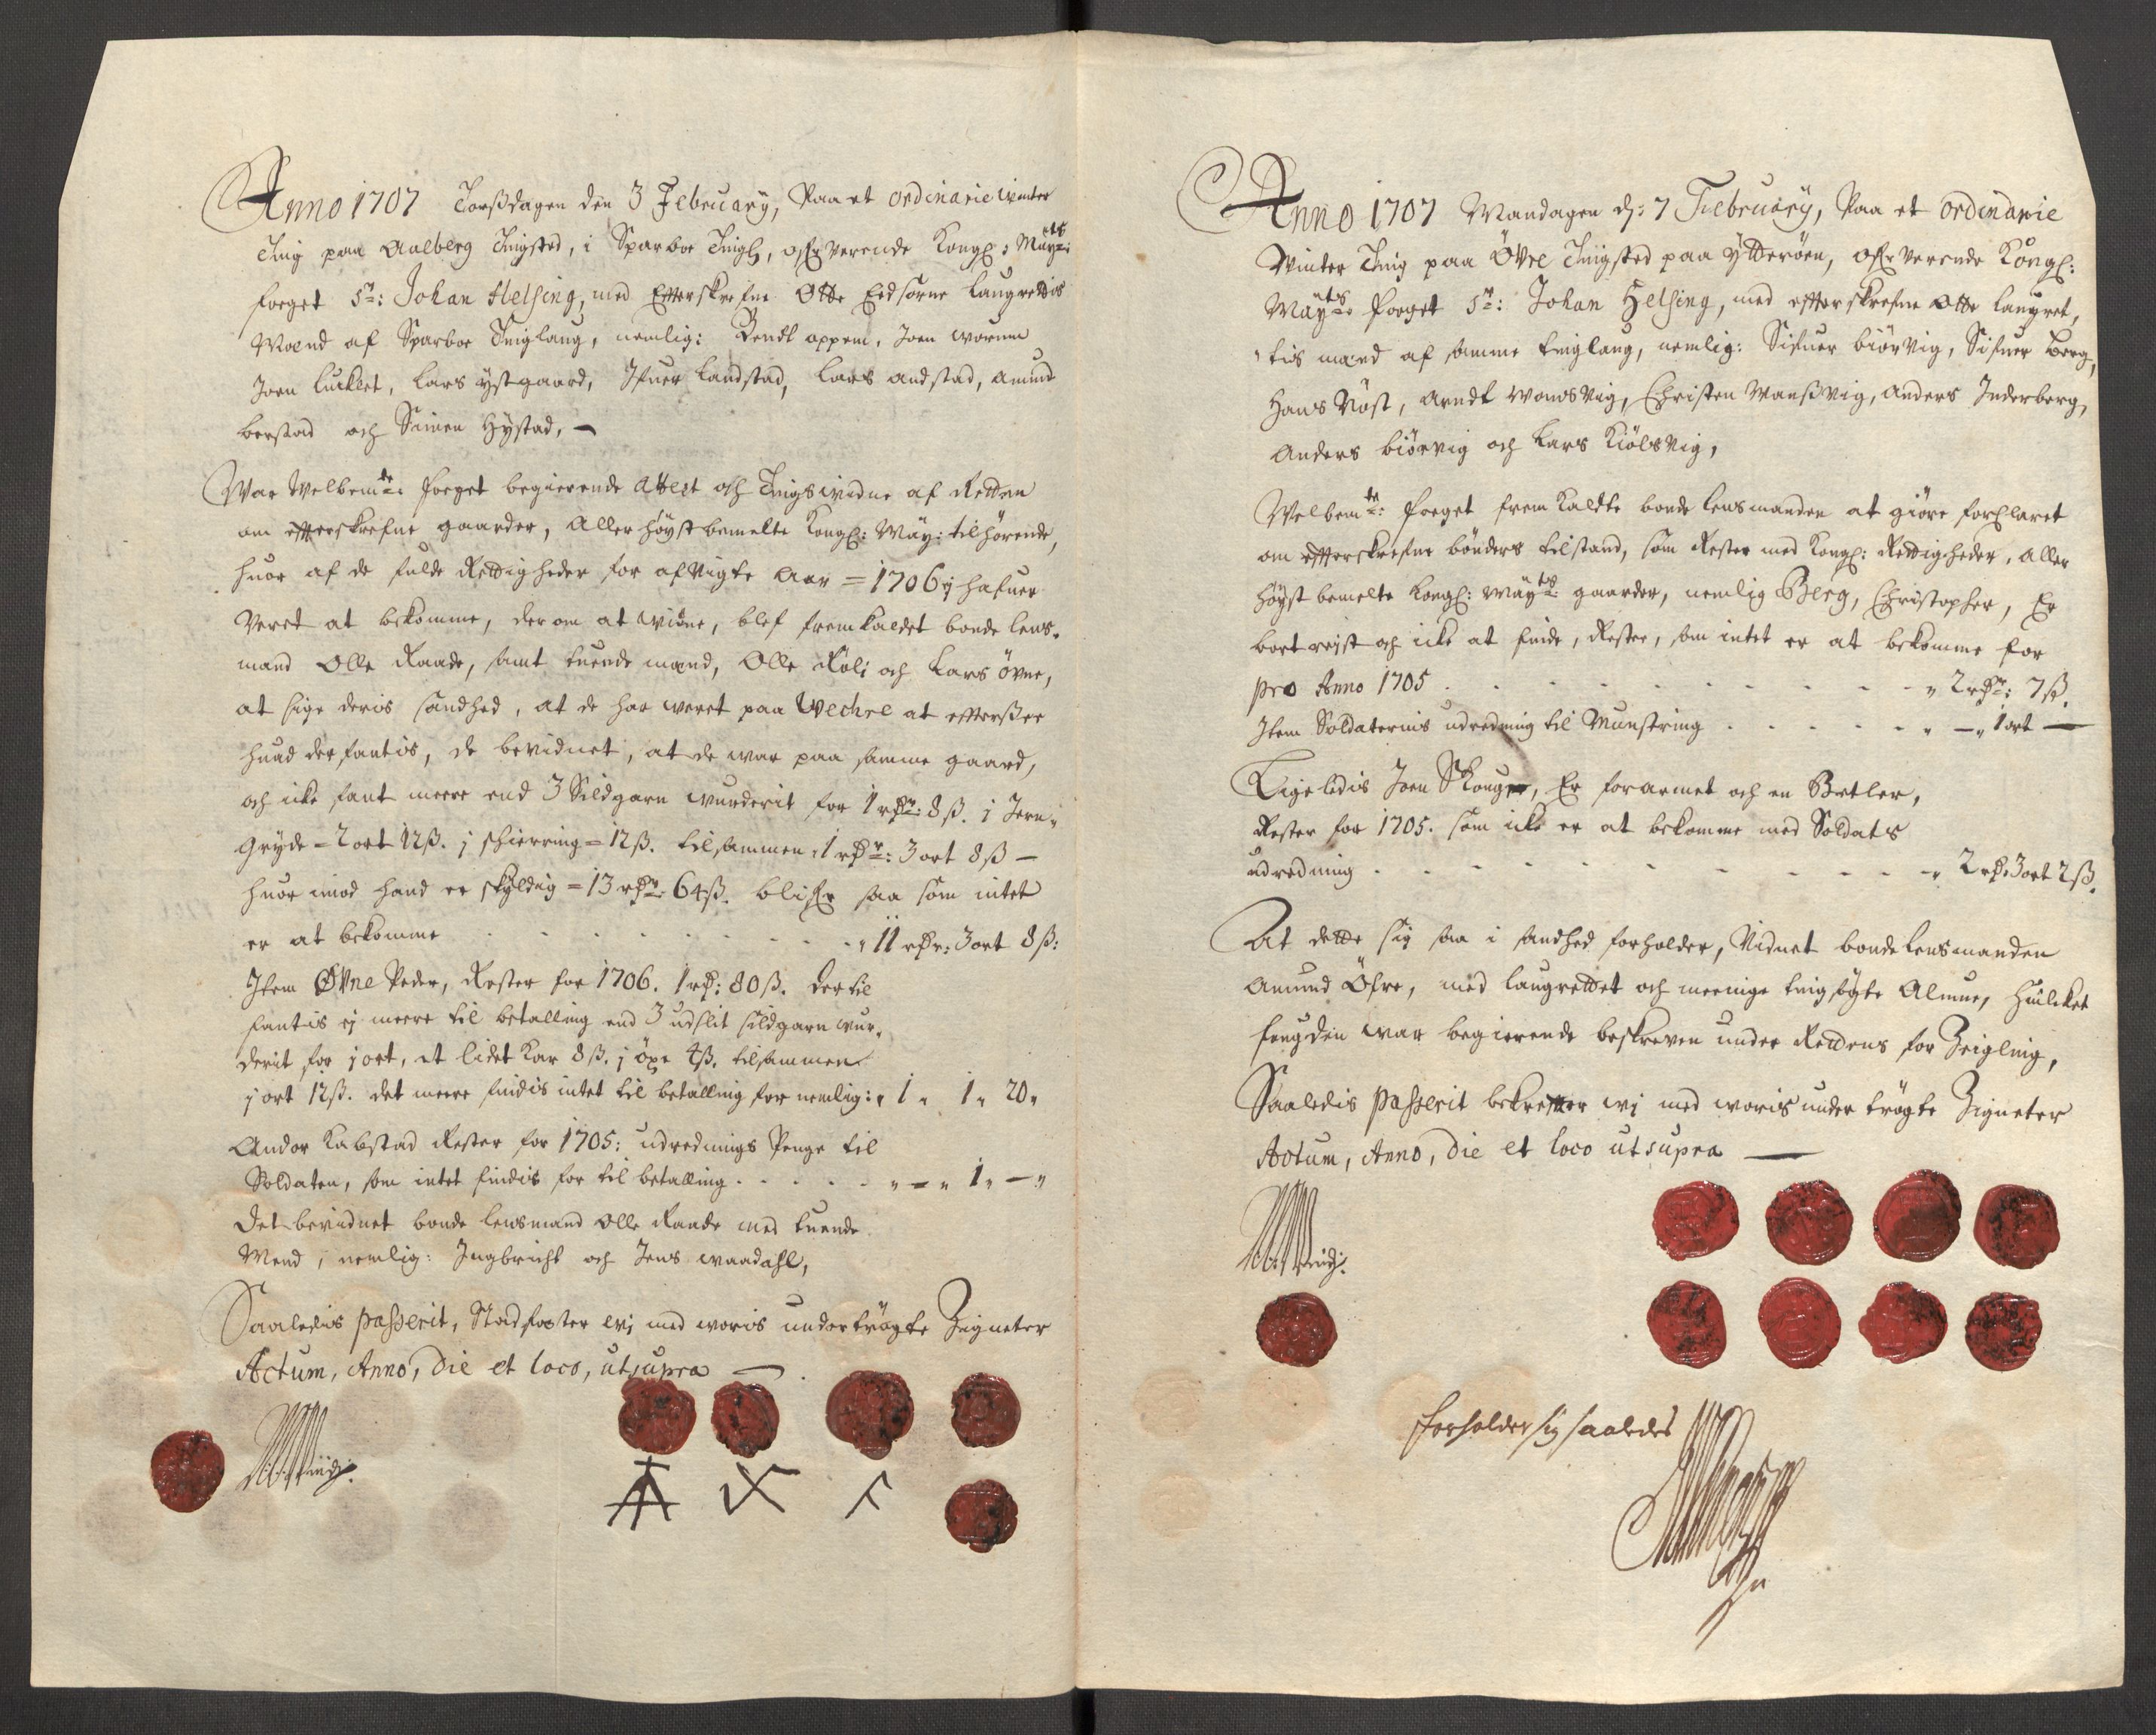 Anno 1707 Torßdagen den 3 February, Paa et ordinarie winter
Ting paa Aalberg Tingsted, i Sparboe Tingl, ofververende Kongl: Mayts:
foeget Sr: Johan Helsing, med Efterskrefne Otte Eedsorne Laugrettis
Mænd af Sparboe Tinglaug, nemlig: Bendt oppem, Joen worum
Joen Lucket, Lars ystgaard, Ifuer Landstad, Lars andstad, Amund
berstad och Simen Hystad, —
War Welbemte: foeget begierende Attest och Tingswidne af Retten
om efterskrefne gaarder, Aller höystbemelte Kongl: May: tilhörende,
huor af de fulde Rettigheder for afvigte Aar = 1706 ej hafuer
Veret at bekomme, der om at widne, blef fremkaldet bonde lens-
mand Olle Raade, samt tuende mænd, Olle Roli och Lars övne,
at sige deris sandhed, at de har weret paa Wechre at efterßee
huad der fantis, de bevidnet, at de war paa samme gaard,
och icke fant meere end 3 Sildgarn wurderit for 1 rdr: 8 ß. i Jern-
Gryde = 2 ort 12 ß. j schierring = 12 ß. tilsammen, 1 rdr: 3 ort 8 ß —
huor imod hand er skyldig = 13 rdr: 64 ß. blifver saa som intet
er at bekomme - - - - - - - - - „ 11 rdr: 3 ort 8 ß:
Item Øvne Peder, Rester for 1706. 1 rd: 80 ß. der til
fantis ej meere til betalling end 3 udslit sildgarn wur-
derit for j ort, et lidet Kar 8 ß. j öxe 4 ß. tilsammen
j ort 12 ß. det meere findis intet til betalling for nemlig: „ 1 „ 1 „ 20 „
Andor Kabstad Rester for 1705: udrednings Penge til
Soldaten, som intet findis for til betalling - - - - - „ — „ 1 „ — „
Det bevidnet bonde lensmand Olle Raade med tuende
Mend, nemlig: Ingbricht och Jens waadahl,
Saaledis passerit, Stadfester wj med woris undertrögte Zigneter
Actum, Anno, Die et loco, utsupra —
Anno 1707 Mandagen d: 7 Februarij, Paa et ordinarie
Winter Ting paa Övre Tingsted paa Ytterøen, ofververende Kongl:
Mayts: foeget Sr: Johan Helsing, med efterskrefne Otte laugret,
tis mænd af samme tinglaug, nemlig: Sifuer biörvig, Sifuer berg,
Hans Vöst, Arndt wansvig, Christen Wanßvig, Anders Inderberg,
Anders biörvig och Lars Kiölsvig,
Welbemte: foeget fremkaldte bonde lensmanden at giöre forclaret
om efterskrefne bönders tilstand, som Rester med Kongl: Rettigheder, Aller
höystbemelte Kongl: Mayts: gaarder, nemlig Berg, Christopher, Er
bortreyst och icke at finde, Rester, som intet er at bekomme for
pro Anno 1705 - - - - - - - - - - „ 2 rdr: 7 ß.
Item Soldaternis udredning til Munstring - - - - - - „ — „ 1 ort —
Ligeledis Joen Skouger, Er forarmet och en Betler,
Rester for 1705. som icke er at bekomme med Soldats
udredning - - - - - - - - - - „ 2 rd: 3 ort 2 ß.
At dette sig saa i sandhed forholder, Vidnet bonde lensmanden
Amund Öfre, med laugrettet och meenige tingsøgte Almue, huilcket
fougden war begierende beskreven under Rettens for Zeigling,
Saaledis passerit bekrefter wj med woris under trögte Zigneter
Actum, Anno, Die et loco utsupra —
forholder sig saaledes